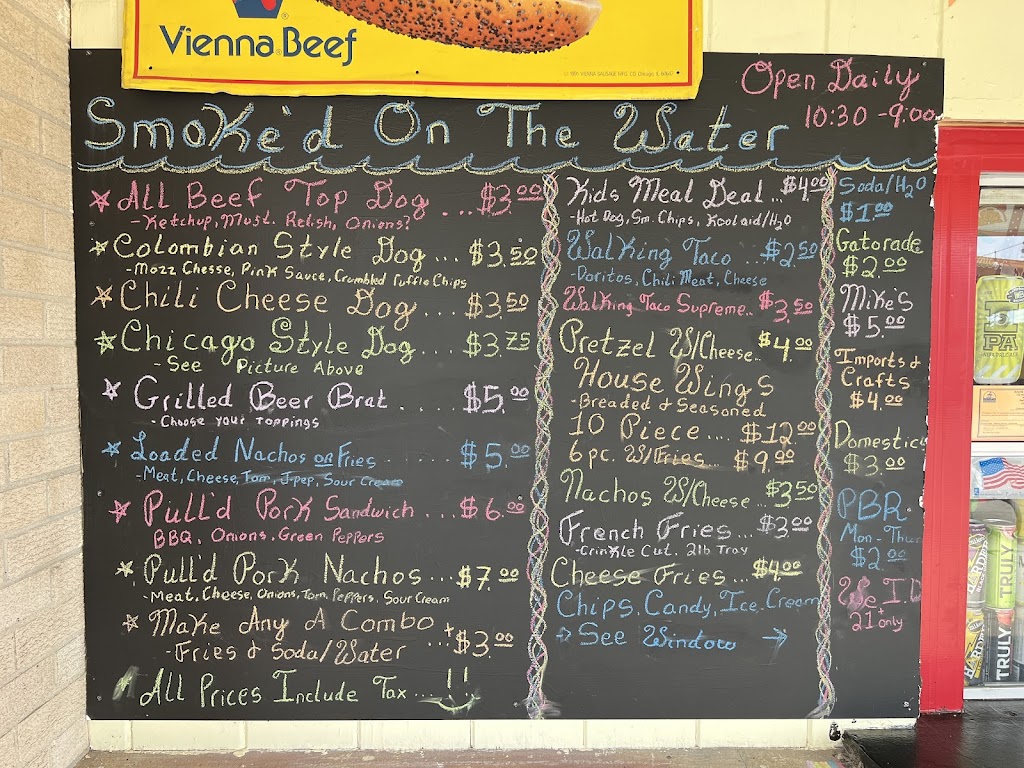 Vienna® Beef
© 1991 VIENNA SAUSAGE MFG. CO. Chicago, IL 60647
Open Daily
10:30 - 9:00
Smoke'd On The Water
All Beef Top Dog ... $3.00
- Ketchup, Must. Relish, Onions?
Colombian Style Dog ... $3.50
- Mozz Chesse, Pink Sauce, Crumbled Ruffle Chips
Chili Cheese Dog $3.50
Chicago Style Dog .... $3.75
- See Picture Above
Grilled Beer Brat ..... $5.00
- Choose your Toppings
Loaded Nachos or Fries ..... $5.00
- Meat, Cheese, Tom, J-pep, Sour Cream
Pull'd Pork Sandwich ... $6.00
BBQ, Onions, Green Peppers
Pull'd Pork Nachos ... $7.00
- Meat, Cheese, Onions, Tom, Peppers, Sour Cream
Make Any A Combo
- Fries & Soda/Water ... + $3.00
All Prices Include Tax ... !!
Kids Meal Deal .. $4.00
- Hot Dog, Sm. Chips, Koolaid/H2O
Walking Taco ... $2.50
- Doritos, Chili Meat, Cheese
Walking Taco Supreme.. $3.50
Pretzel W/Cheese... $4.00
House Wings
- Breaded & Seasoned
10 Piece ... $12.00
6 pc. W/Fries $9.00
Nachos W/Cheese . $3.50
French Fries ... $3.00
- Crinkle Cut. 2lb Tray
Cheese Fries ... $4.00
Chips, Candy, Ice-Cream
→ See Window →
Soda/H2O
$1.00
Gatorade
$2.00
Mike's
$5.00
Imports &
Crafts
$4.00
Domestics
$3.00
PBR
Mon-Thur
$2.00
We ID
21 only
IPA
TRULY
TRULY